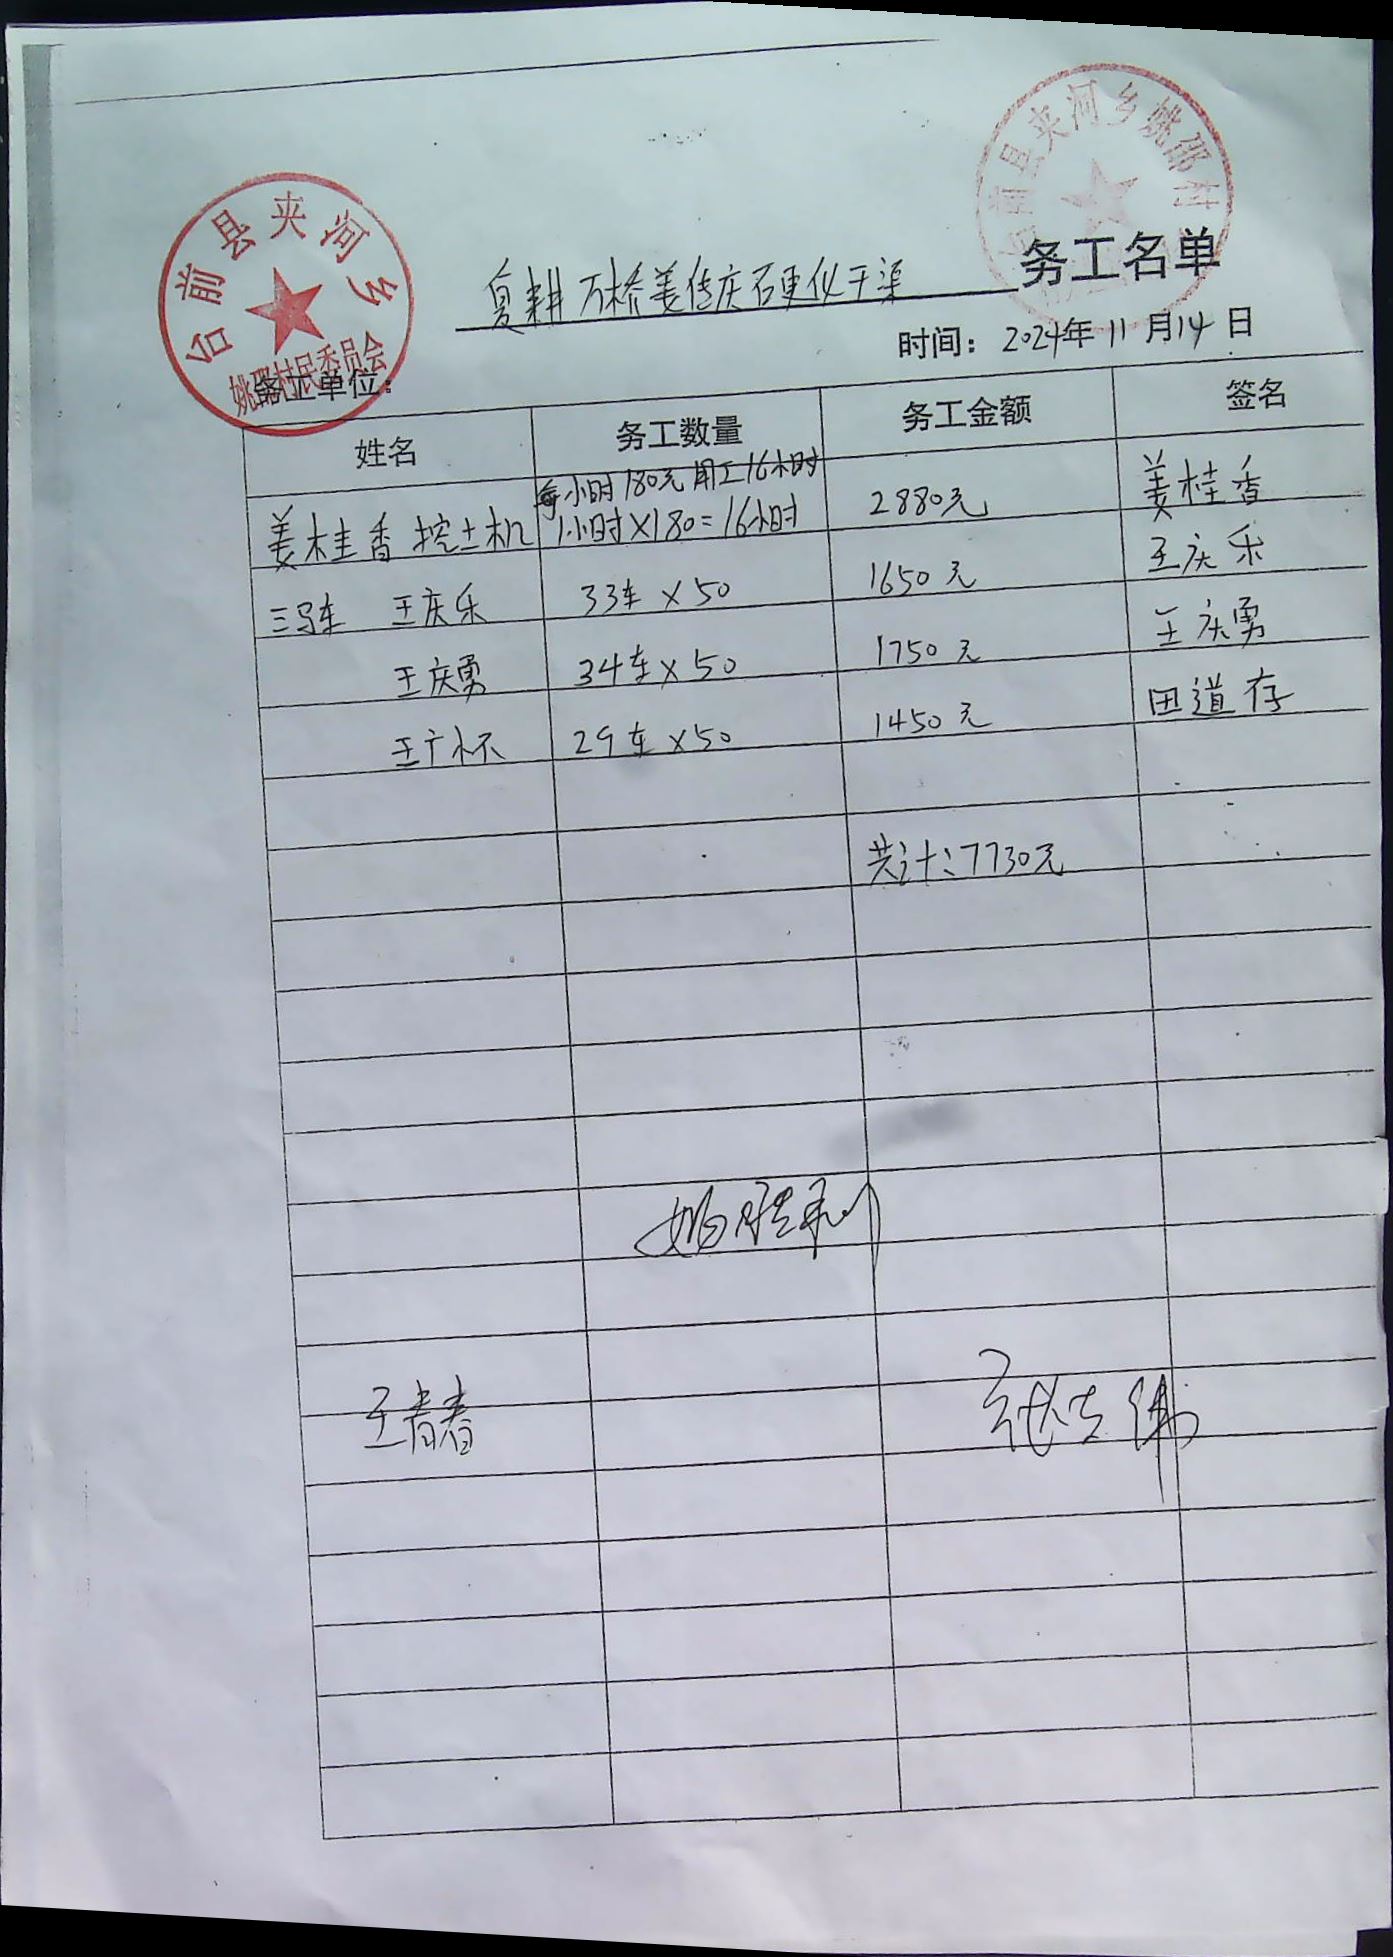 台前县夹河乡姚邵村
台前县夹河乡
姚邵村民委员会
复耕万桥姜传庆石更化干渠 务工名单
时间：2024年11月14日
务工单位：
姓名 务工数量 务工金额 签名
每小时180元用工16小时
姜桂香 挖土机 1小时×180=16小时 2880元 姜桂香
三马车 王庆乐 33车×50 1650元 王庆乐
王庆勇 34车×50 1750元 王庆勇
王广怀 29车×50 1450元 田道存
共计：7730元
姚胜利
王春春